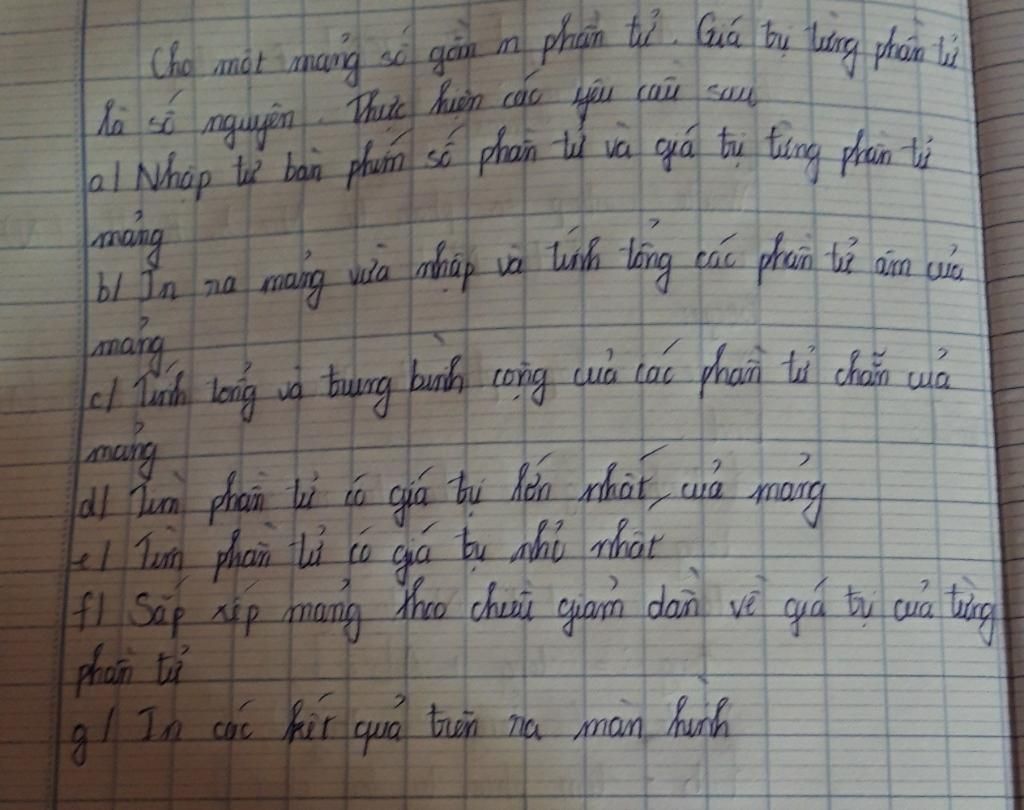 Cho một mảng số gồm n phần tử. Giá trị từng phần tử
là số nguyên. Thực hiện các yêu cầu sau
a/ Nhập từ bàn phím số phần tử và giá trị từng phần tử
mảng
b/ In ra mảng vừa nhập và tính tổng các phần tử âm của
mảng
c/ Tính tổng và trung bình cộng của các phần tử chẵn của
mảng
d/ Tìm phần tử có giá trị lớn nhất của mảng
e/ Tìm phần tử có giá trị nhỏ nhất
f/ Sắp xếp mảng theo chiều giảm dần về giá trị của từng
phần tử
g/ In các kết quả trên ra màn hình